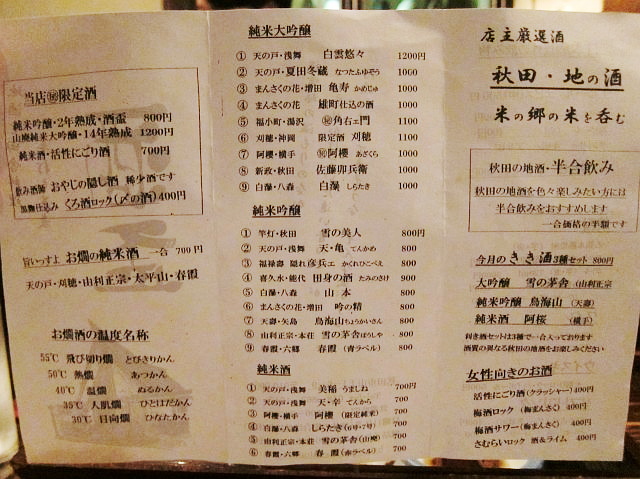 店主厳選酒
秋田・地の酒
米の郷の米を呑む
秋田の地酒・半合飲み
秋田の地酒を色々楽しみたい方には
半合飲みをおすすめします
一合価格の半額です
今月のきき酒3種セット 800円
大吟醸 雪の茅舎 (由利正宗
純米吟醸 鳥海山 (天壽)
純米酒 阿桜 (横手)
利き酒セットは3種で一合入っております
酒質の異なる秋田の地酒をお楽しみください
女性向きのお酒
活性にごり酒(クラッシャー)400円
梅酒ロック (梅まんさく) 400円
梅酒サワー(梅まんさく) 400円
さむらいロック 酒&ライム 400円
純米大吟醸
① 天の戸・浅舞 白雲悠々 1200円
② 天の戸・夏田冬蔵 なつたふゆぞう 1000
③ まんさくの花・増田 亀寿 かめじゅ 1000
④ まんさくの花 雄町仕込の酒 1000
⑤ 福小町・湯沢 ㊙角右ェ門 1100
⑥ 刈穂・神岡 限定酒 刈穂 1100
⑦ 阿櫻・横手 ㊙阿櫻 あざくら 1000
⑧ 新政・秋田 佐藤卯兵衛 1000
⑨ 白瀑・八森 白瀑 しらたき 1000
純米吟醸
① 竿灯・秋田 雪の美人 800円
② 天の戸・浅舞 天・亀 てんかめ 800
③ 福禄壽 隠れ彦兵ェ かくれひこべえ 800
④ 喜久水・能代 田身の酒 たみのさけ 900
⑤ 白瀑・八森 山本 800
⑥ まんさくの花・増田 吟の精 800
⑦ 天壽・矢島 鳥海山ちょうかいさん 800
⑧ 由利正宗・本荘 雪の茅舎ぼうしゃ 800
⑨ 春霞・六郷 春霞 (青ラベル) 800
純米酒
① 天の戸・浅舞 美稲 うましね 700円
② 天の戸・浅舞 天・辛 てんから 700
③ 阿櫻・横手 阿櫻 (限定純米) 700
④ 白瀑・八森 しらたき(6号・7号) 700
⑤ 由利正宗・本荘 雪の茅舎(山廃) 700
⑥ 春霞・六郷 春霞 (赤ラベル) 700
当店㊙限定酒
純米吟醸・2年熟成・酒盃 800円
山廃純米大吟醸・14年熟成 1200円
純米酒・活性にごり酒 700円
飲み酒師 おやじの隠し酒 稀少酒です
黒麹仕込み くろ酒ロック(〆の酒)400円
旨いっすよ お燗の純米酒 一合 700円
天の戸・刈穂・由利正宗・太平山・春霞
お燗酒の温度名称
55℃ 飛び切り燗 とびきりかん
50℃ 熱燗 あつかん
40℃ 温燗 ぬるかん
35℃ 人肌燗 ひとはだかん
30℃ 日向燗 ひなたかん